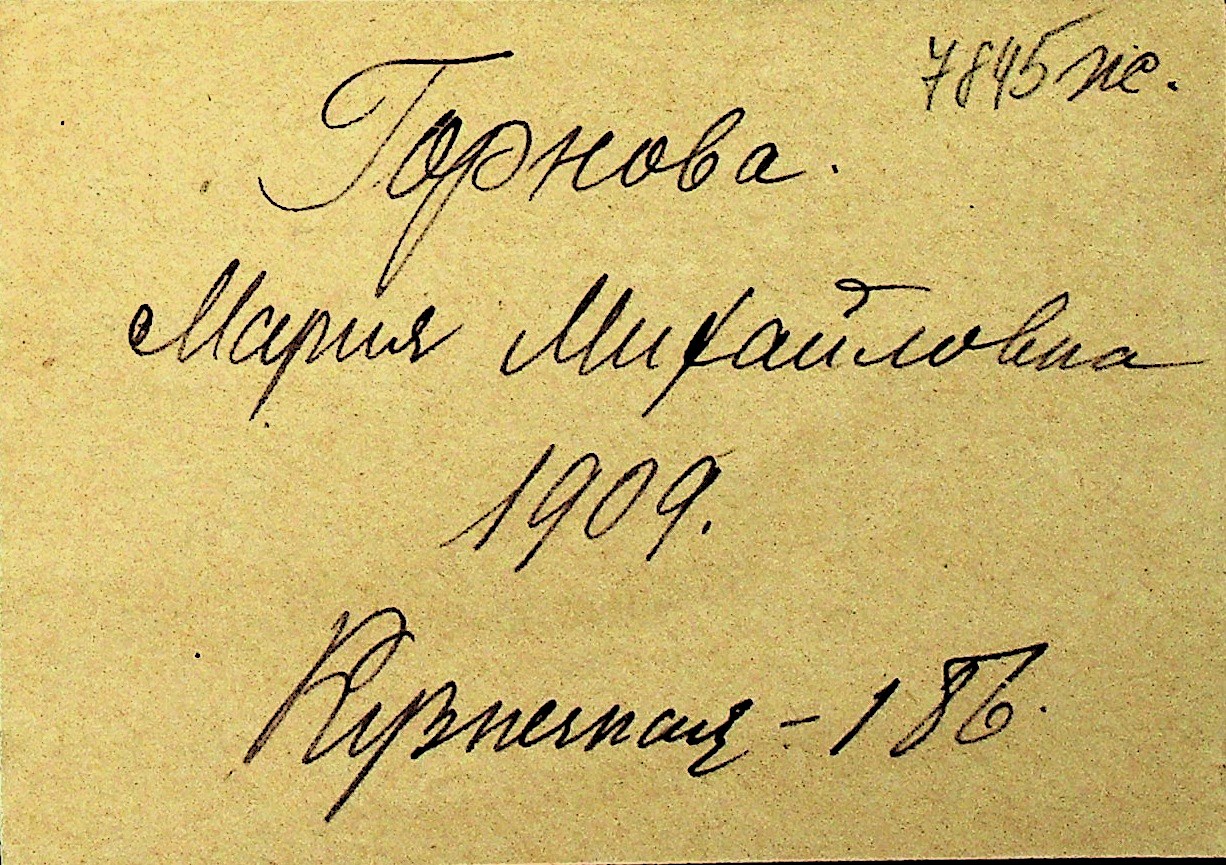 7845 ж.
Горнова.
Мария Михайловна
1909.
Кузнечная - 186.